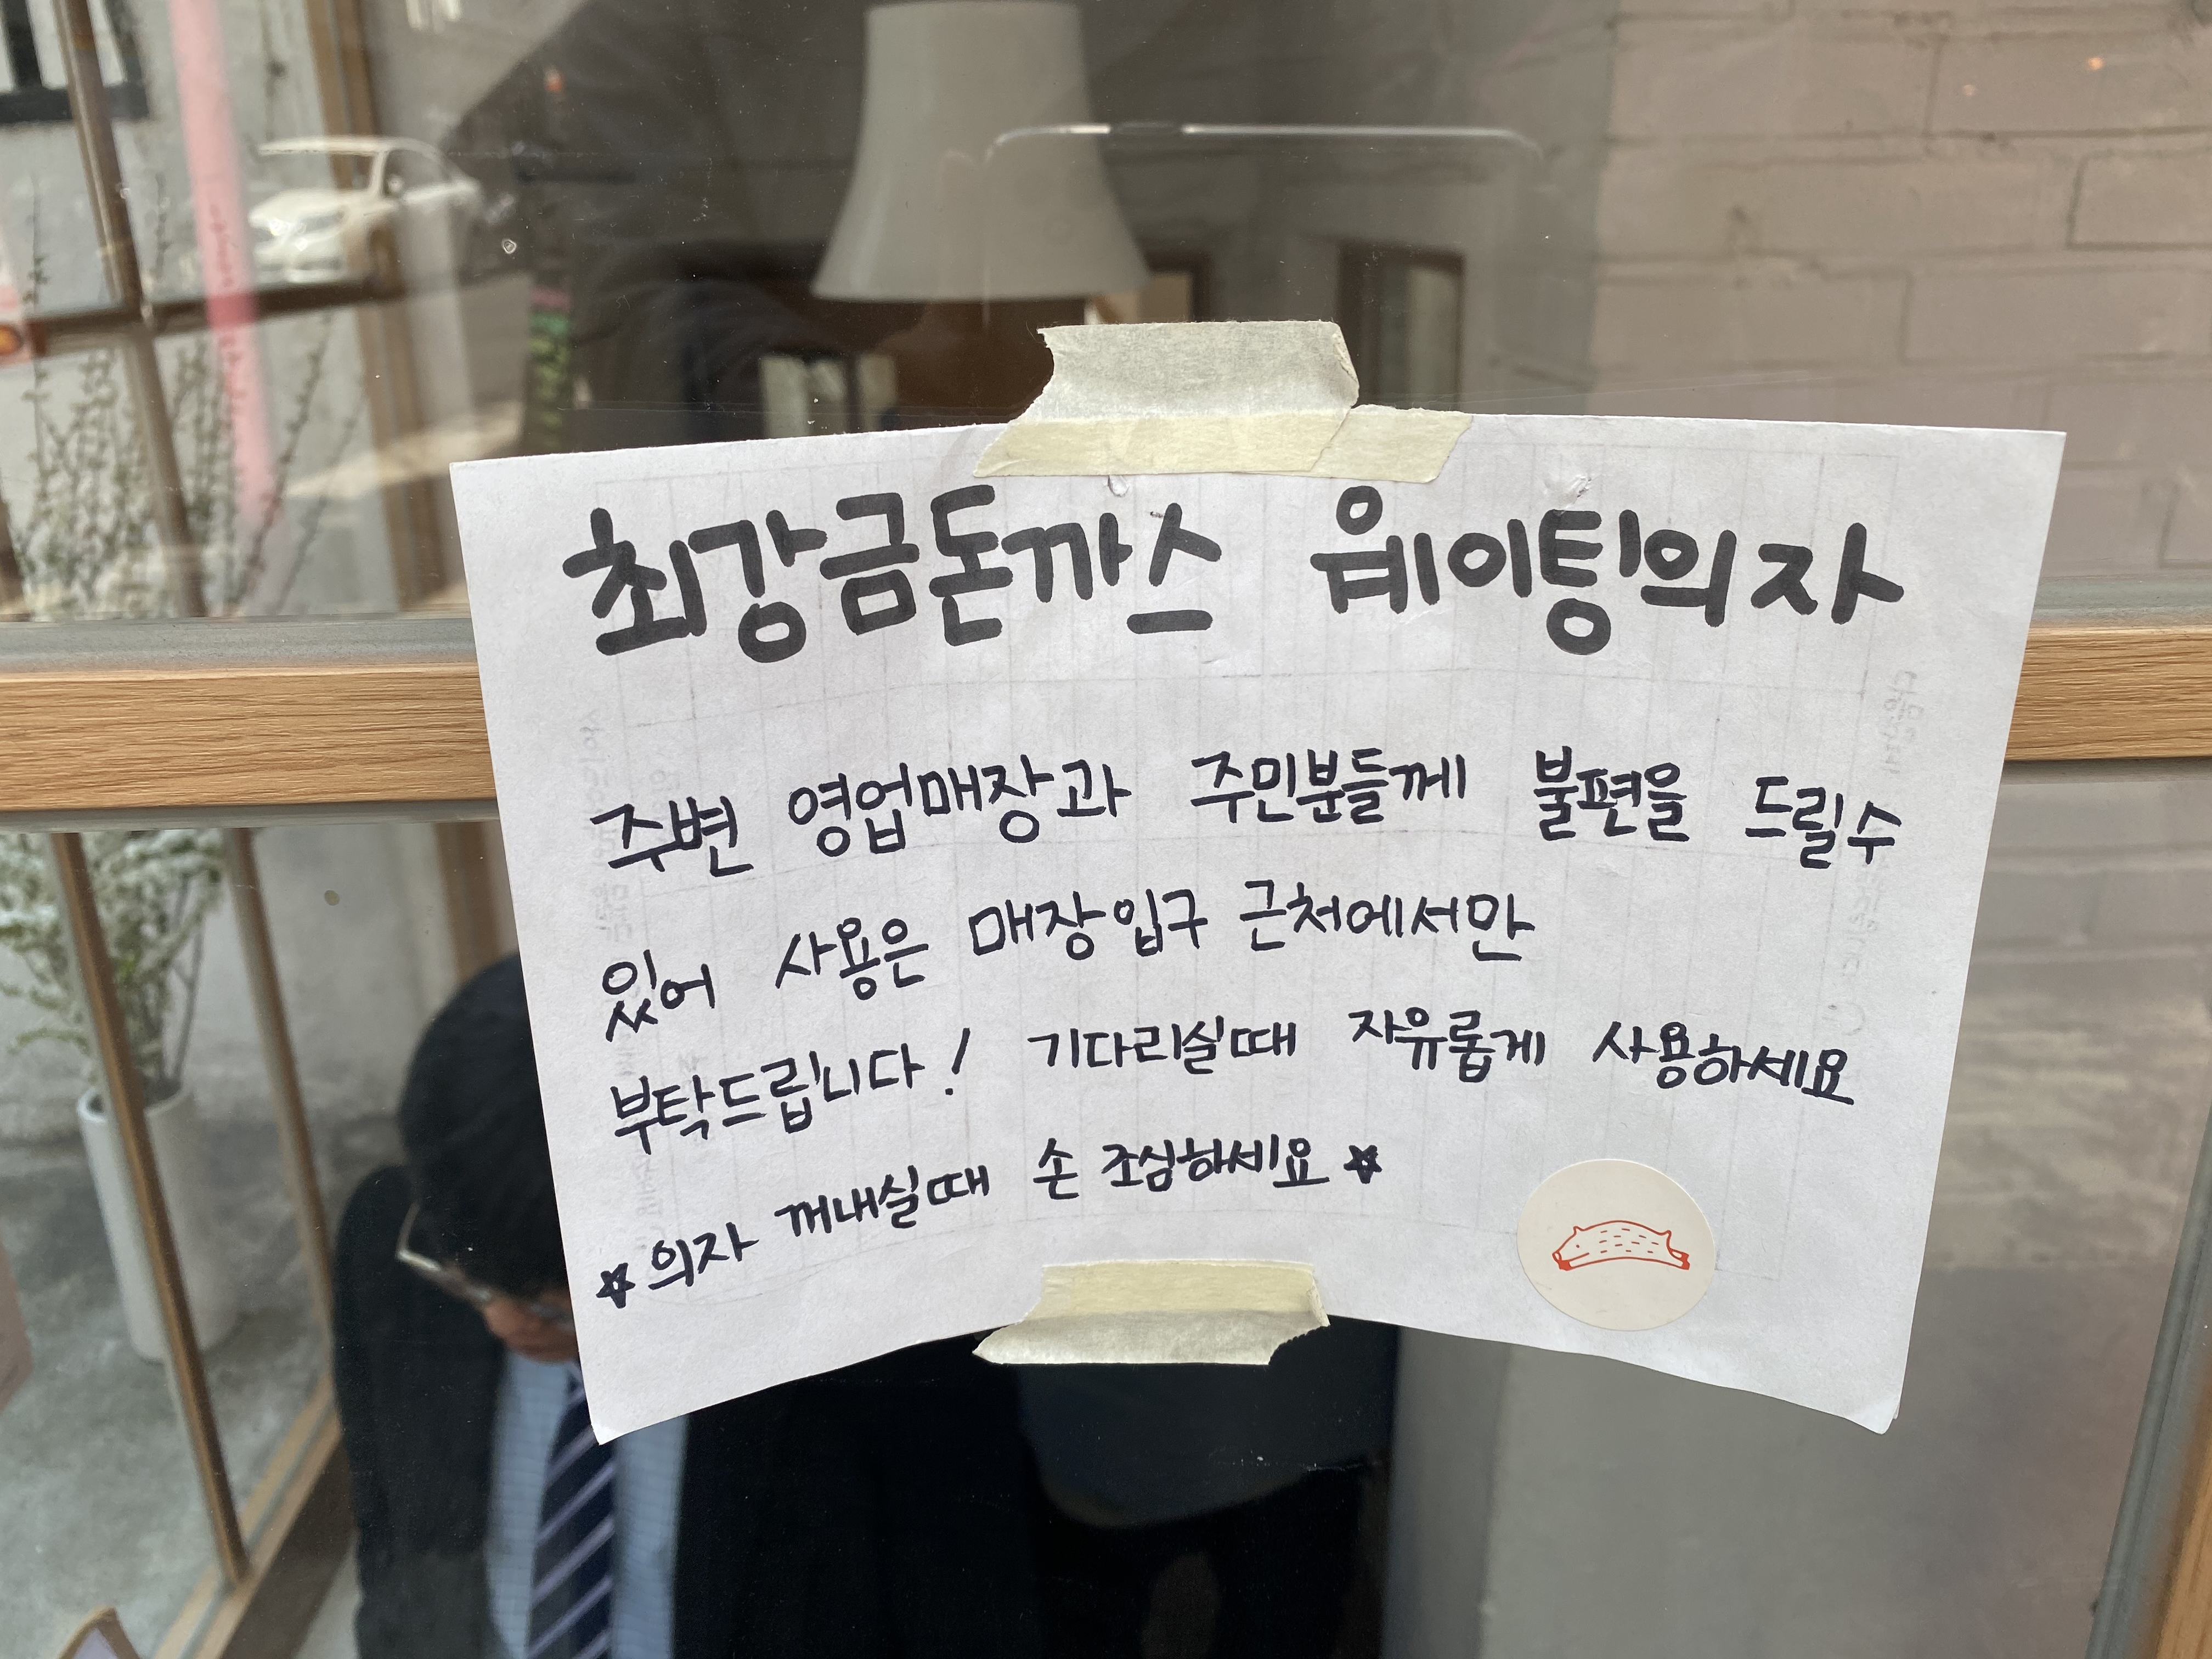 최강금돈까스 웨이팅의자
주변 영업매장과 주민분들께 불편을 드릴수
있어 사용은 매장입구 근처에서만
부탁드립니다! 기다리실때 자유롭게 사용하세요
☆의자 꺼내실때 손 조심하세요☆